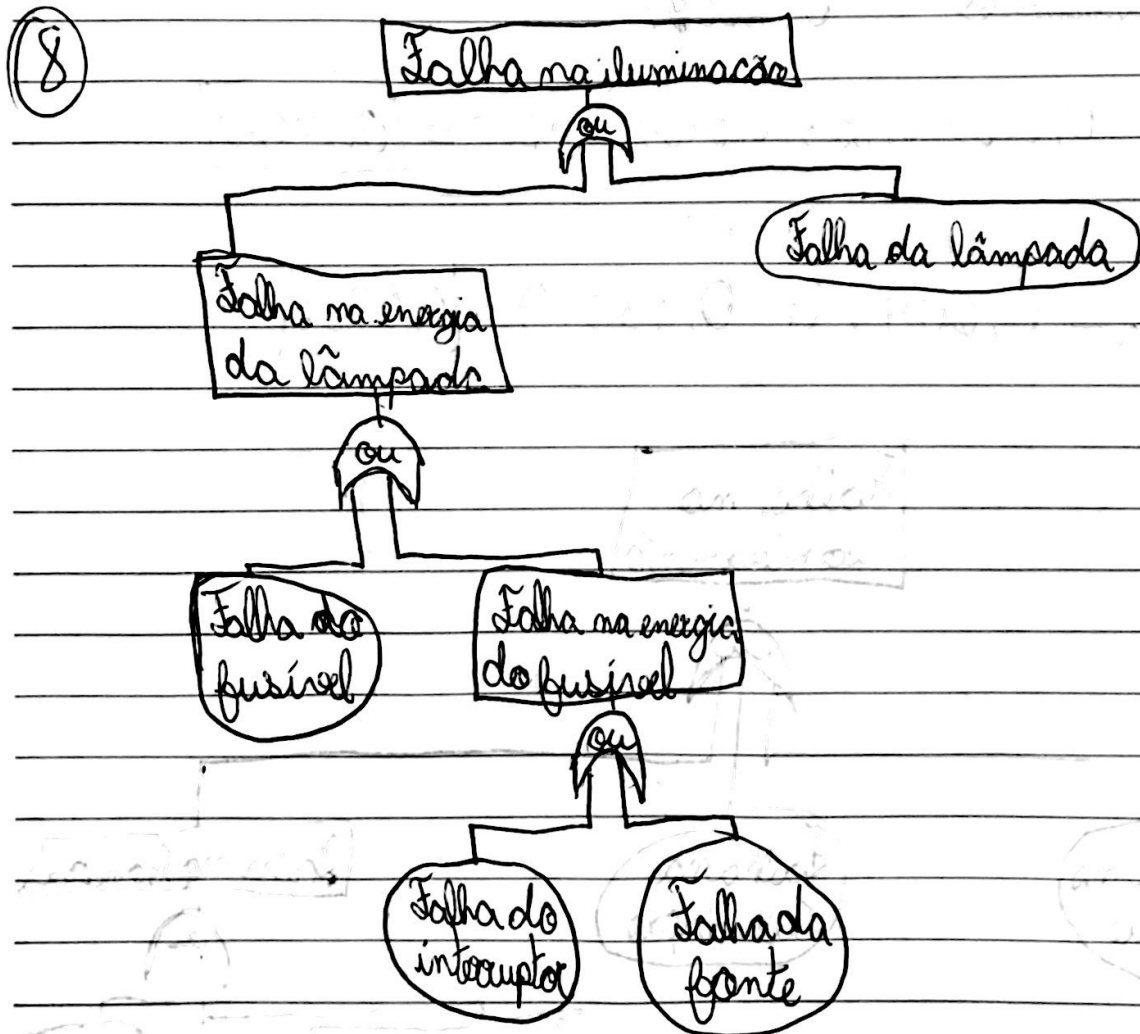 8
Falha na iluminacão
ou
Falha da lâmpada
Falha na energia
da lâmpada
ou
Falha do
fusível
Falha na energia
do fusível
ou
Falha do
interruptor
Falha da
fonte